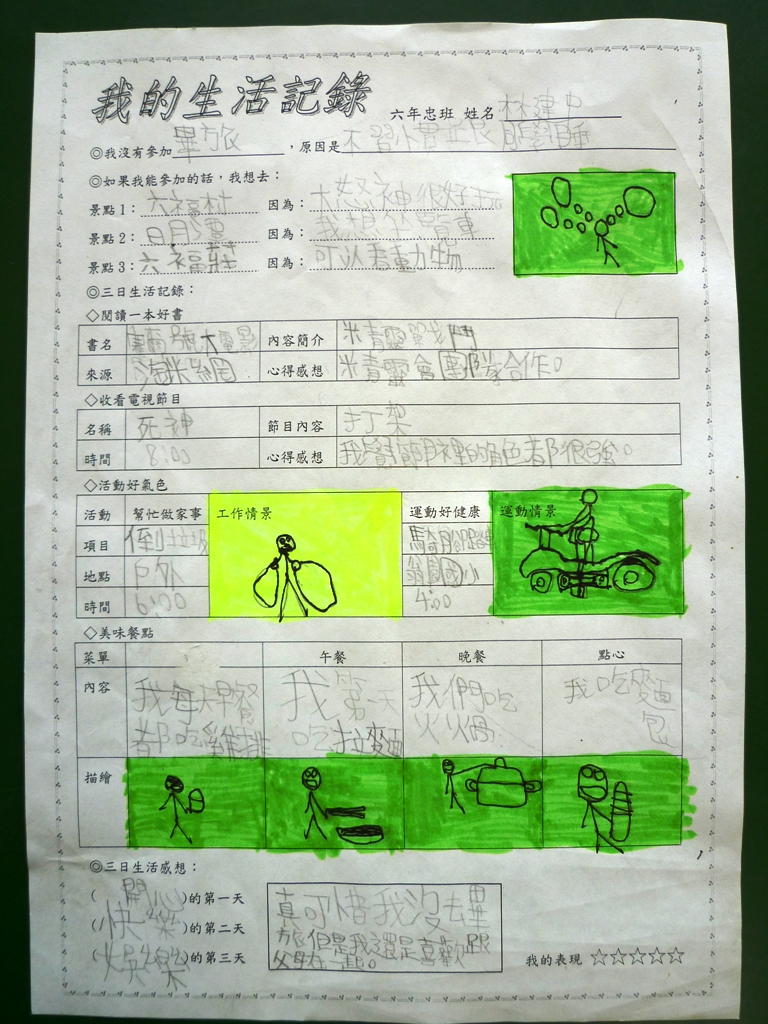 我的生活記錄
六年忠班 姓名 林建中
◎我沒有參加畢旅，原因是不習慣在民宿睡
◎如果我能參加的話，我想去：
景點1：六福村 因為：大怒神很好玩
景點2：日月潭 因為：我想坐纜車
景點3：六福莊 因為：可以看動物
◎三日生活記錄：
◇閱讀一本好書
書名 大電影 內容簡介 精靈戰鬥
來源 淘米網 心得感想 精靈會團隊合作。
◇收看電視節目
名稱 死神 節目內容 打架
時間 8:00 心得感想 我覺得節目裡的角色都很強。
◇活動好氣色
活動 幫忙做家事 工作情景 運動好健康 運動情景
項目 倒垃圾 騎腳踏車
地點 戶外 國小
時間 6:00 4:00
◇美味餐點
菜單 午餐 晚餐 點心
內容 我每天早餐都吃雞排 我第一天吃拉麵 我們吃火鍋 我吃麵包
描繪
◎三日生活感想：
(開心)的第一天
(快樂)的第二天
(娛樂)的第三天
真可惜我沒去畢
旅但是我還是喜歡跟
父母在一起。
我的表現 ☆☆☆☆☆